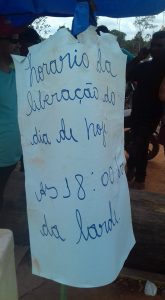 horario da
liberação do
dia de hoje
as 18:00
da tarde